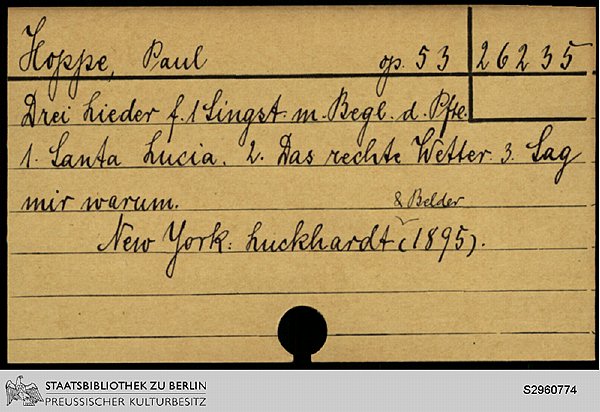 Hoppe, Paul op. 53 26235
Drei Lieder f. 1 Singst. m. Begl. d. Pfte.
1. Santa Lucia. 2. Das rechte Wetter. 3. Sag
mir warum.
& Belder
New York: Luckhardt (1895).
STAATSBIBLIOTHEK ZU BERLIN
PREUSSISCHER KULTURBESITZ
S2960774